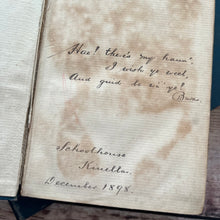 "Hae! there's my haun',
I wish ye weel,
And gude be wi' ye!"
Burns.
Schoolhouse
Kinellar.
December 1898.